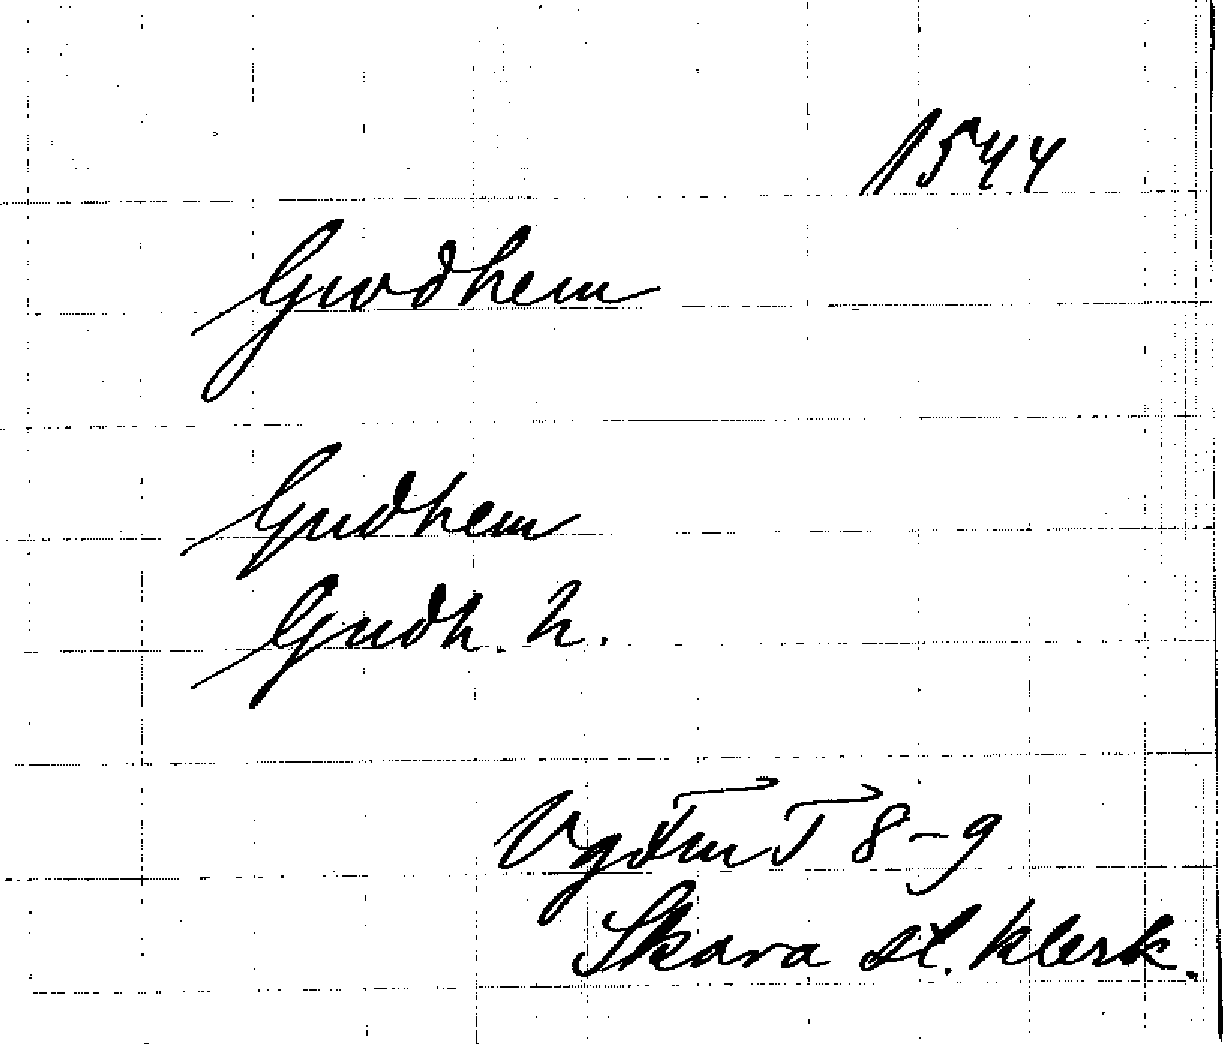 1544
Gwdhem
Gudhem
Gudh. h.
VgFmT 8-9
Skara st. klerk.